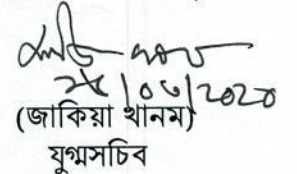 ২৫/০৩/২০২০
(জাকিয়া খানম)
যুগ্মসচিব